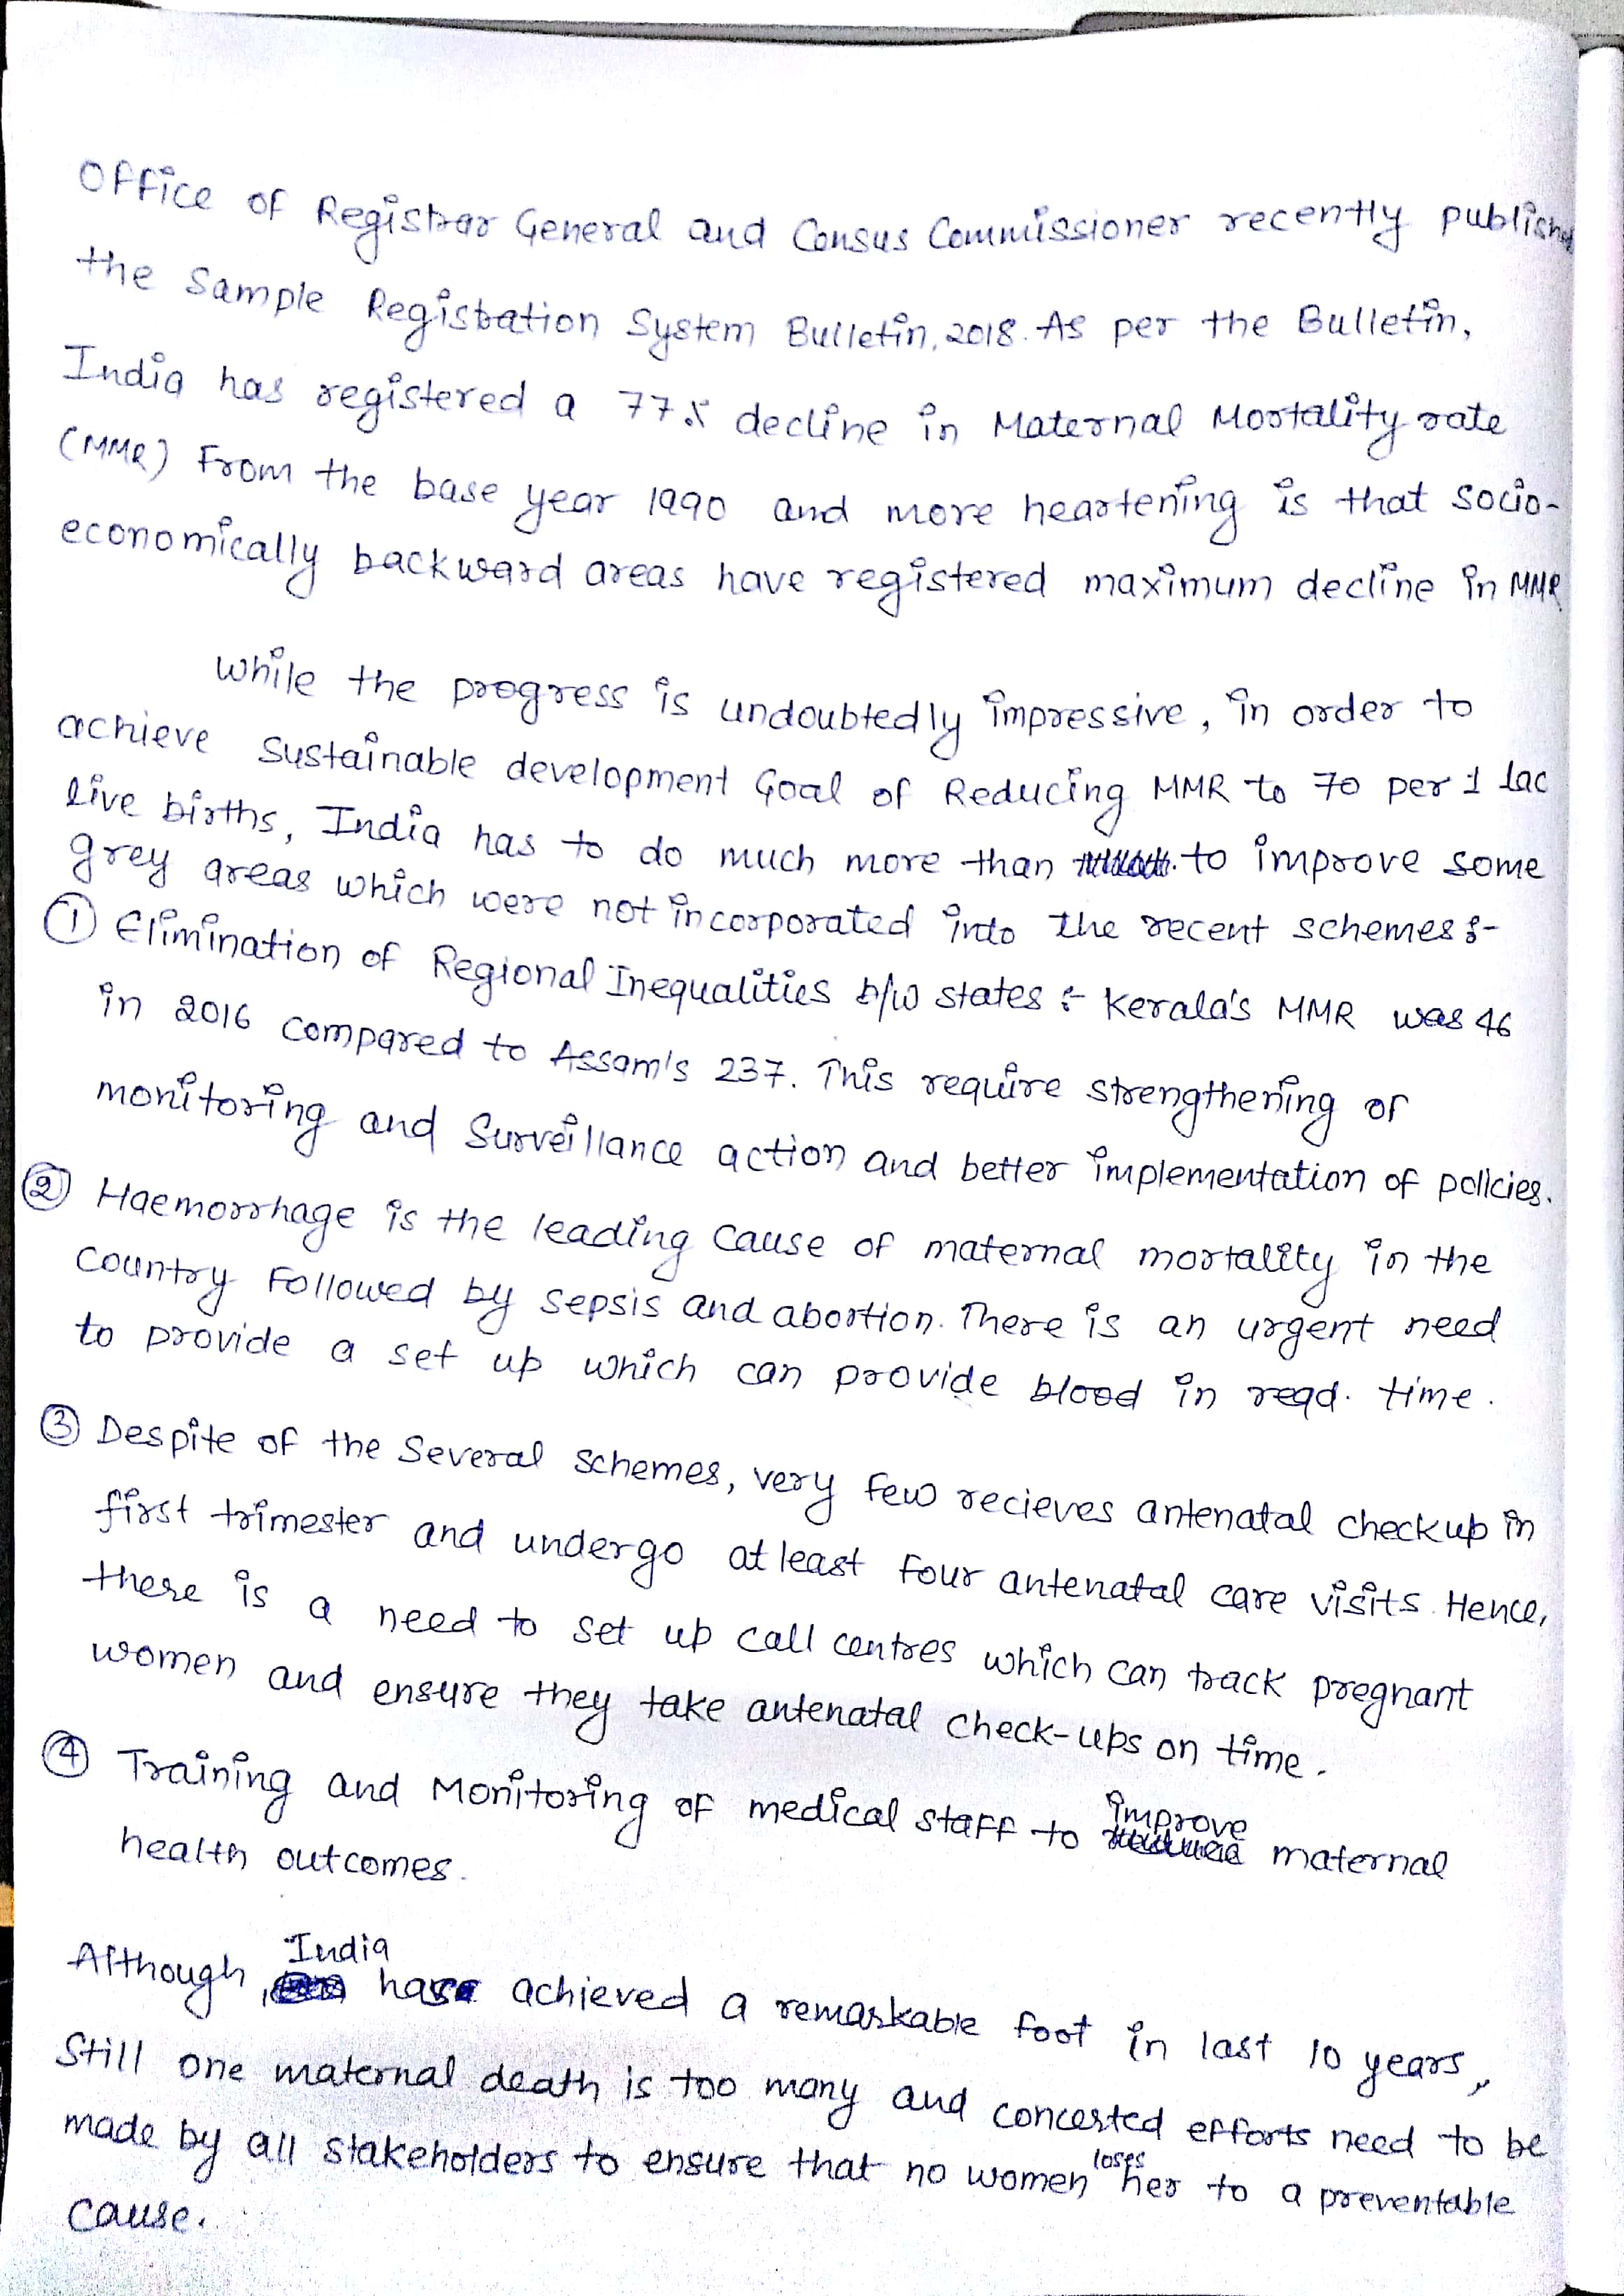 Office of Registrar General and Census Commissioner recently published
the Sample Registration System Bulletin, 2018. As per the Bulletin,
India has registered a 77% decline in Maternal Mortality rate
(MMR) From the base year 1990 and more heartening is that socio-
economically backward areas have registered maximum decline in MMR
While the progress is undoubtedly impressive, in order to
achieve sustainable development Goal of Reducing MMR to 70 per 1 lac
live births, India has to do much more than to improve some
grey areas which were not incorporated into the recent schemes :-
① Elimination of Regional Inequalities b/w states :- Kerala's MMR was 46
in 2016 compared to Assam's 237. This require strengthening of
monitoring and Surveillance action and better implementation of policies.
② Haemorrhage is the leading cause of maternal mortality in the
country Followed by sepsis and abortion. There is an urgent need
to provide a set up which can provide blood in reqd. time.
③ Despite of the Several schemes, very few recieves antenatal checkup in
first trimester and undergo at least four antenatal care visits. Hence,
there is a need to set up call centres which can track pregnant
women and ensure they take antenatal check-ups on time.
④ Training and Monitoring of medical staff to improve maternal
health outcomes.
Although, India has achieved a remarkable foot in last 10 years,
Still one maternal death is too many and concerted efforts need to be
made by all stakeholders to ensure that no women loses her to a preventable
cause.